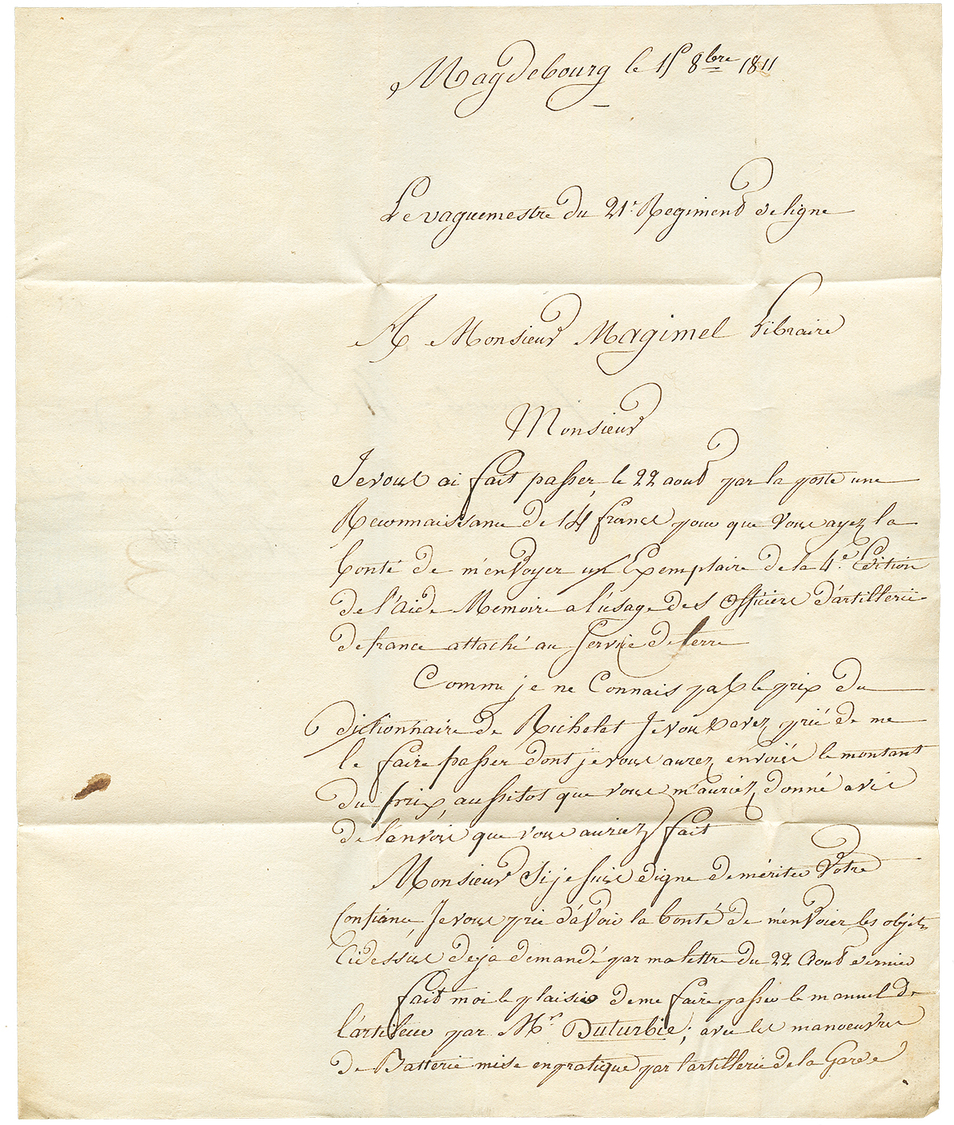 Magdebourg le 15 8bre 1811
Le vaguemestre du 21e Regiment de ligne
A Monsieur Magimel Libraire
Monsieur
Je vous ai fait passer, le 22 aout par la poste une
Reconnaissance de 14 francs pour que vous ayez la
bonté de m'envoyer un Exemplaire de la 4e Edition
de l'Aide Memoire a l'usage des officiers d'artillerie
de france attaché au Service de terre
Comme je ne Connais pas le prix du
dictionnaire de Richelet Je vous avez prié de me
le faire passer dont je vous aurez envoié le montant
du prix, aussitos que vous m'auriez donné avis
de l'envoie que vous auriez fait
Monsieur Si je suis digne de mériter Votre
Confiance, Je vous prie d'avoir la bonté de m'envoier les objets
Cidessus deja demandé par ma lettre du 22 Aout dernier
fait moi le plaisir de me faire passer le manuel de
l'artileur par Mr Duturbie; avec les manoeuvres
de Batterie mise en pratique par l'artillerie de la Garde